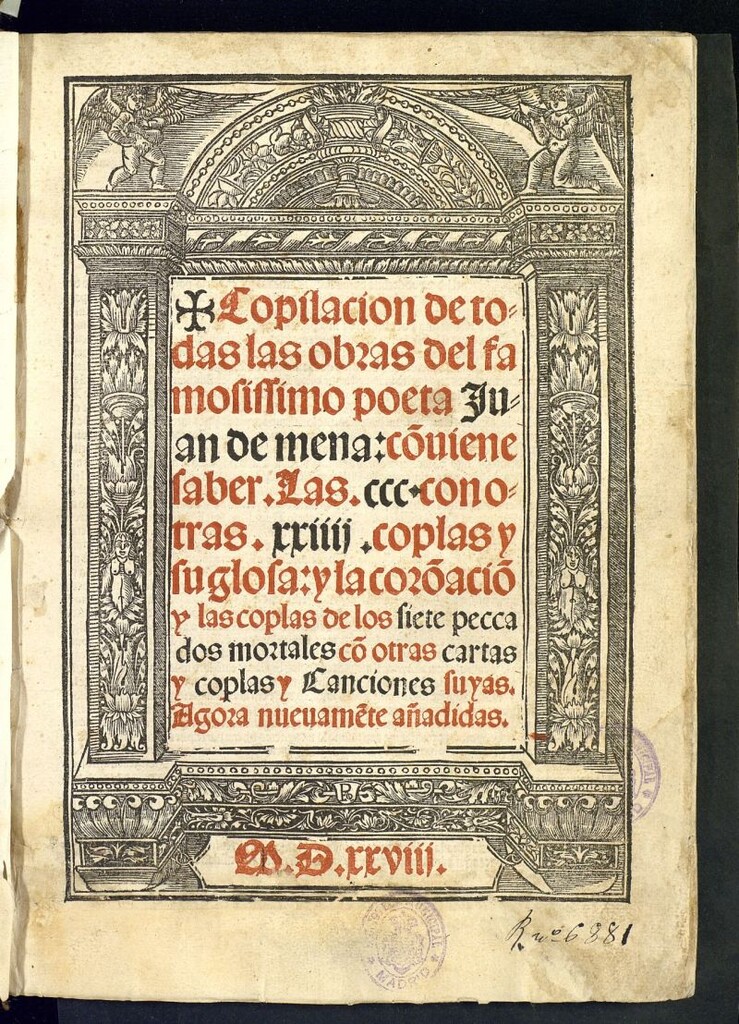 ✠ Copilacion de to⸗
das las obras del fa
mosissimo poeta Ju⸗
an de mena: cõuiene
saber. Las. ccc. con o⸗
tras. xxiiij . coplas y
su glosa: y la corõaciõ
y las coplas de los siete pecca
dos mortales cõ otras cartas
y coplas y Canciones suyas.
Agora nueuamẽte añadidas.
R
M.D.xxviij.
MADRID
R nº 6881